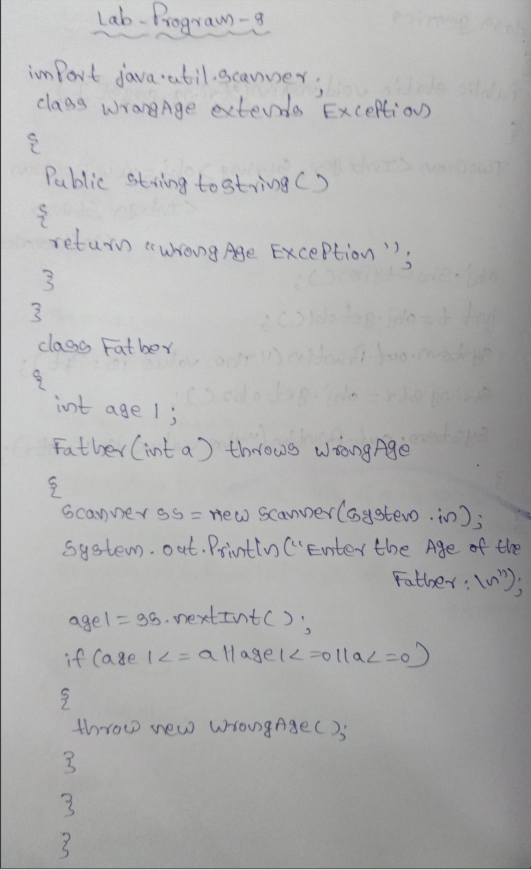 Lab-Program-8
import java.util.scanner;
class WrongAge extends Exception
{
Public string tostring()
{
return "wrong Age Exception";
}
}
class Father
{
int age1;
Father(int a) throws wrongAge
{
Scanner ss = new scanner(system.in);
System.out.Println("Enter the Age of the
Father:\n");
age1 = ss.nextInt();
if (age1<=a||age1<=0||a<=0)
{
throw new wrongAge();
}
}
}